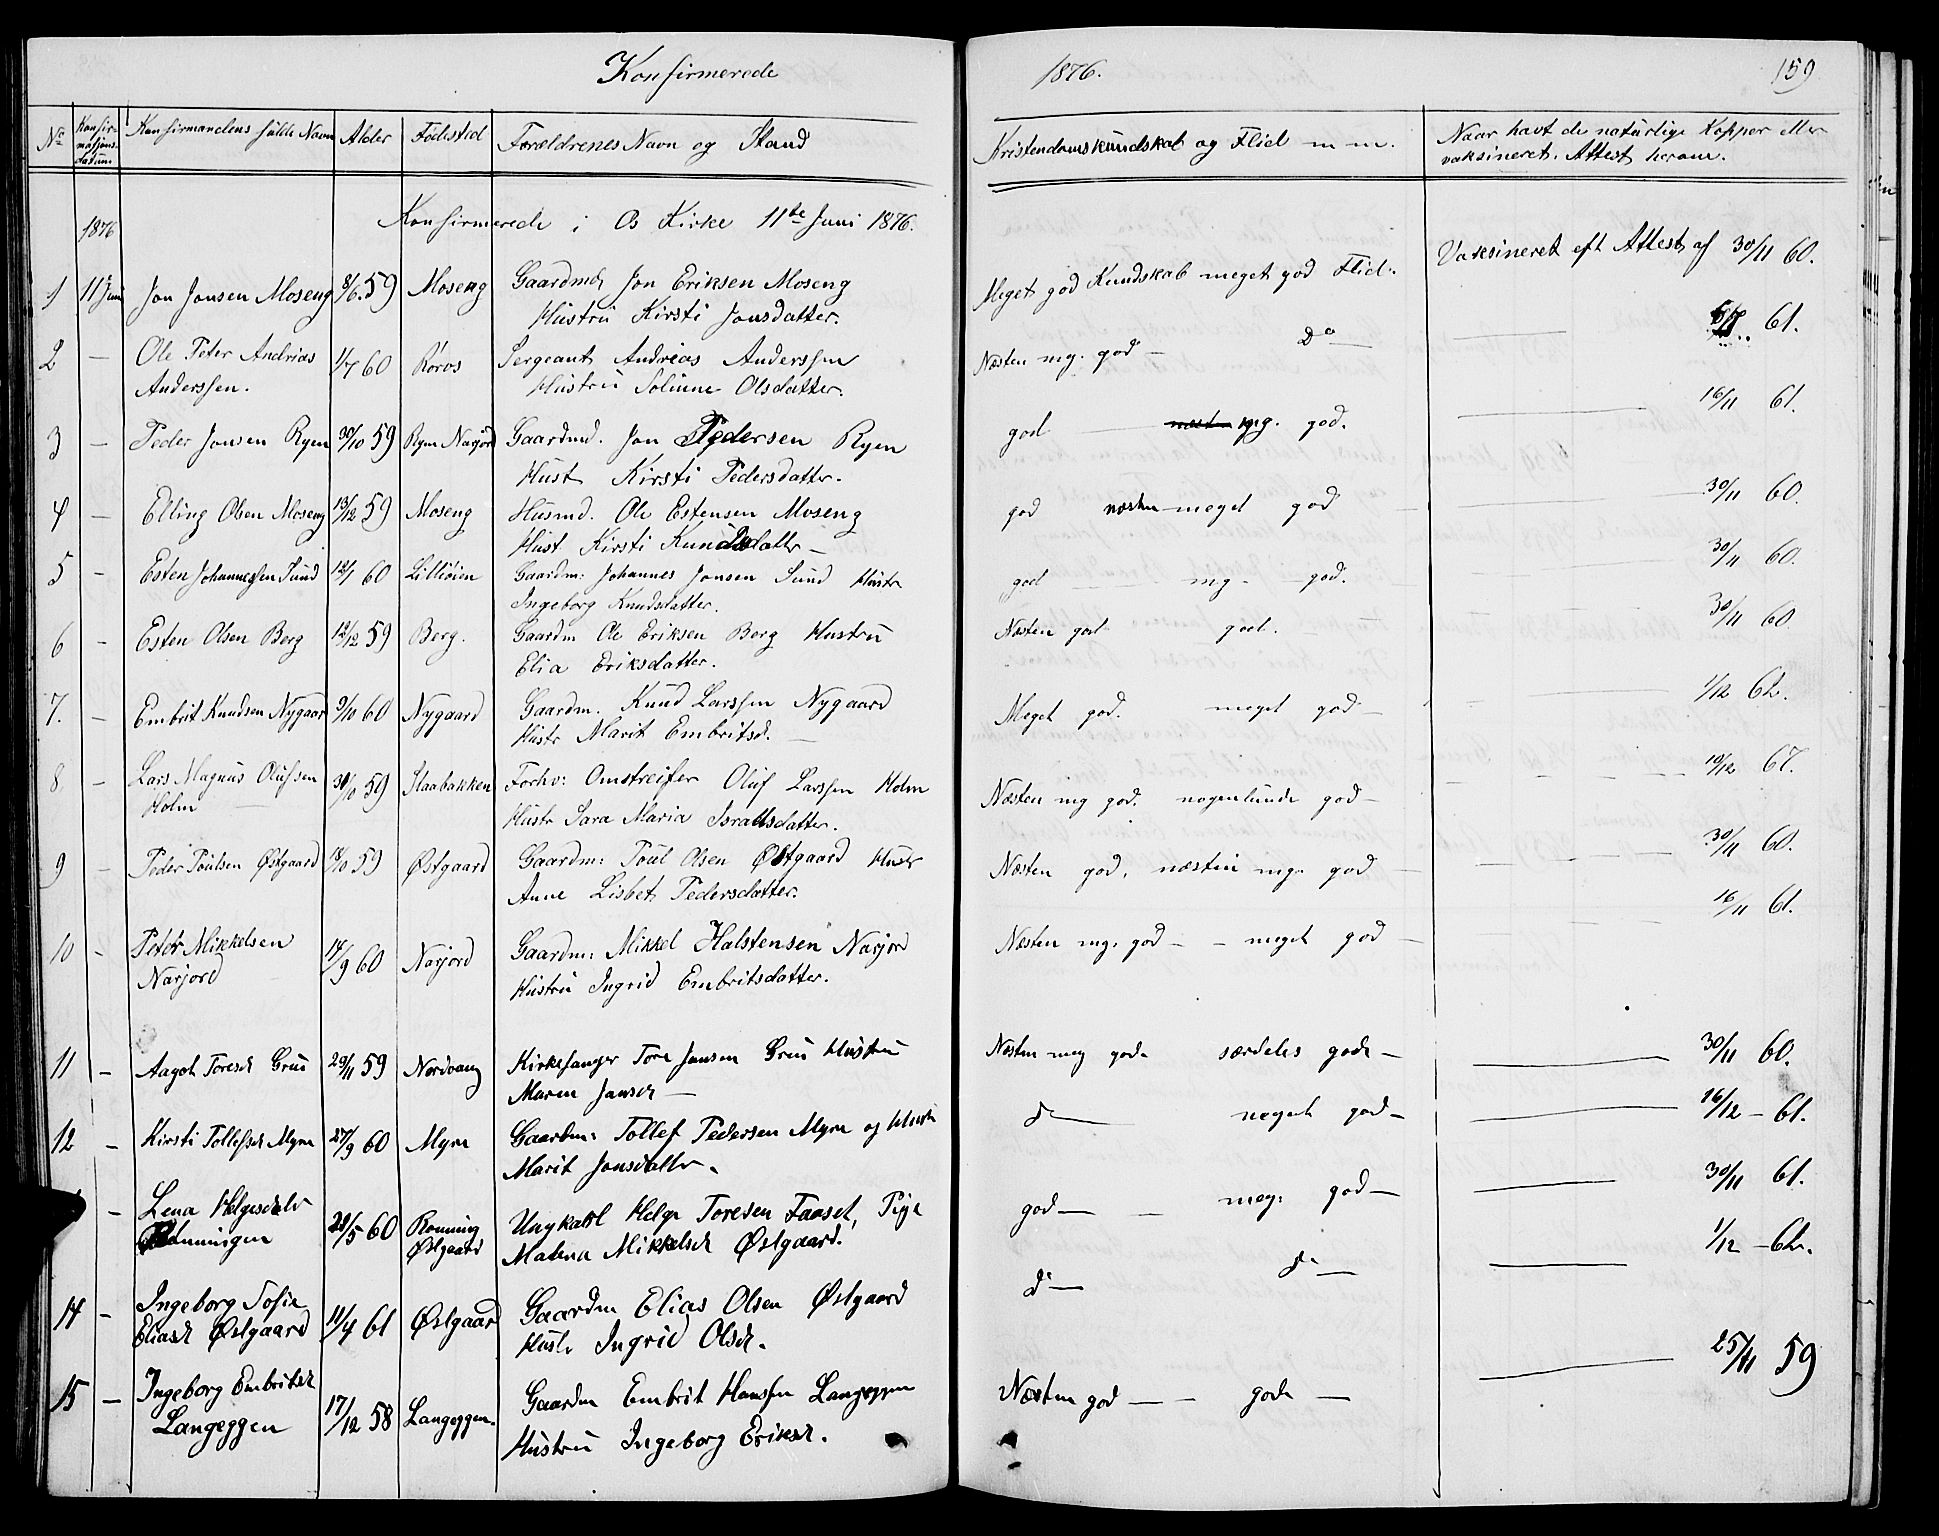 Konfirmerede
1876.
159
No Konfirmationsdatum Konfirmandens fulde Navn Alder Fødested Forældrenes Navn og Stand Kristendomskundskab og Flid m m. Naar havt de naturlige Kopper eller
vaksineret. Attest herom.
1876 Konfirmerede i Os Kirke 11te Juni 1876.
1 11 Juni Jon Jonsen Moseng 8/6 59 Moseng Gaardmd Jon Eriksen Moseng Meget god Kundskab meget god Flid. Vaksineret eft Attest af 30/11 60.
Hustru Kirsti Jonsdatter.
2 — Ole Peter Andrias 1/7 60 Røros Sergeant Andreas Anderssen Næsten mg. god — Do — 61.
Anderssen. Hustru Soline Olsdatter.
3 — Peder Jonsen Ryen 30/10 59 Ryen Narjord Gaardmd. Jon Pedersen Ryen god — mg. god. — 16/11 61.
Hust Kirsti Pedersdatter.
4 — Elling Olsen Moseng 13/12 59 Moseng Husmd. Ole Estensen Moseng god næsten meget god — 30/11 60.
Hust Kirsti Knudsdatter —
5 — Esten Johannessen Sund 12/1 60 Lilleøien Gaardm: Johannes Jonsen Sund Hustr god — mg — god. — 30/11 60.
Ingeborg Knudsdatter.
6 — Esten Olsen Berg 12/12 59 Berg. Gaardm Ole Eriksen Berg Hustru Næsten god god. — 30/11 60
Elia Eriksdatter.
7. — Embrit Knudsen Nygaard 9/10 60 Nygaard Gaardm. Knud Larssen Nygaard Meget god. meget god — 1/12 62.
Hustr Marit Embritsd. —
8 — Lars Magnus Olufssen 30/10 59 Slaabakken Forhv: Omstreifer Oluf Larssen Holm Næsten mg god. nogenlunde god — 19/12 67.
Holm Hustr Sara Maria Israelsdatter.
9 — Peder Poulsen Østgaard 18/10 59 Østgaard Gaardm: Poul Olsen Østgaard Hustr Næsten god, næsten mg. god — 30/11 60.
Anne Lisbet Pedersdatter.
10 — Peter Mikkelsen 14/9 60 Narjord Gaardm: Mikkel Halstensen Narjord Næsten mg. god — — meget god — 16/11 61.
Narjord Hustru Ingrid Embritsdatter.
11 — Aagot Toresd Gruu 29/11 59 Nordvang Kirkesanger Tore Jansen Gruu Hustru Næsten meg god. særdeles god. — 30/11 60.
Maren Jansd —
12 — Kirsti Tollefsd Myre 27/9 60 Myre Gaardm: Tollef Pedersen Myre og Hustr do — meget god — 16/12 — 61.
Marit Jonsdatter.
— Lena Helgesdatr 28/5 60 Rønning Ungkarl Helge Toresen Faaset, Pige god — — meg: god — 30/11 61.
Rønningen Østgaard Malena Mikkelsd Østgaard.
14 — Ingeborg Sofie 11/4 61 Østgaard Gaardm Elias Olsen Østgaard do — do — 1/12 — 62.
Eliasd Østgaard Hustr Ingrid Olsd.
15 — Ingeborg Embritsd 17/12 58 Langeggen. Gaardm Embrit Hanssen Langeggen Næsten god — — god. — 25/11 59
Langeggen Hustru Ingeborg Eriksd.